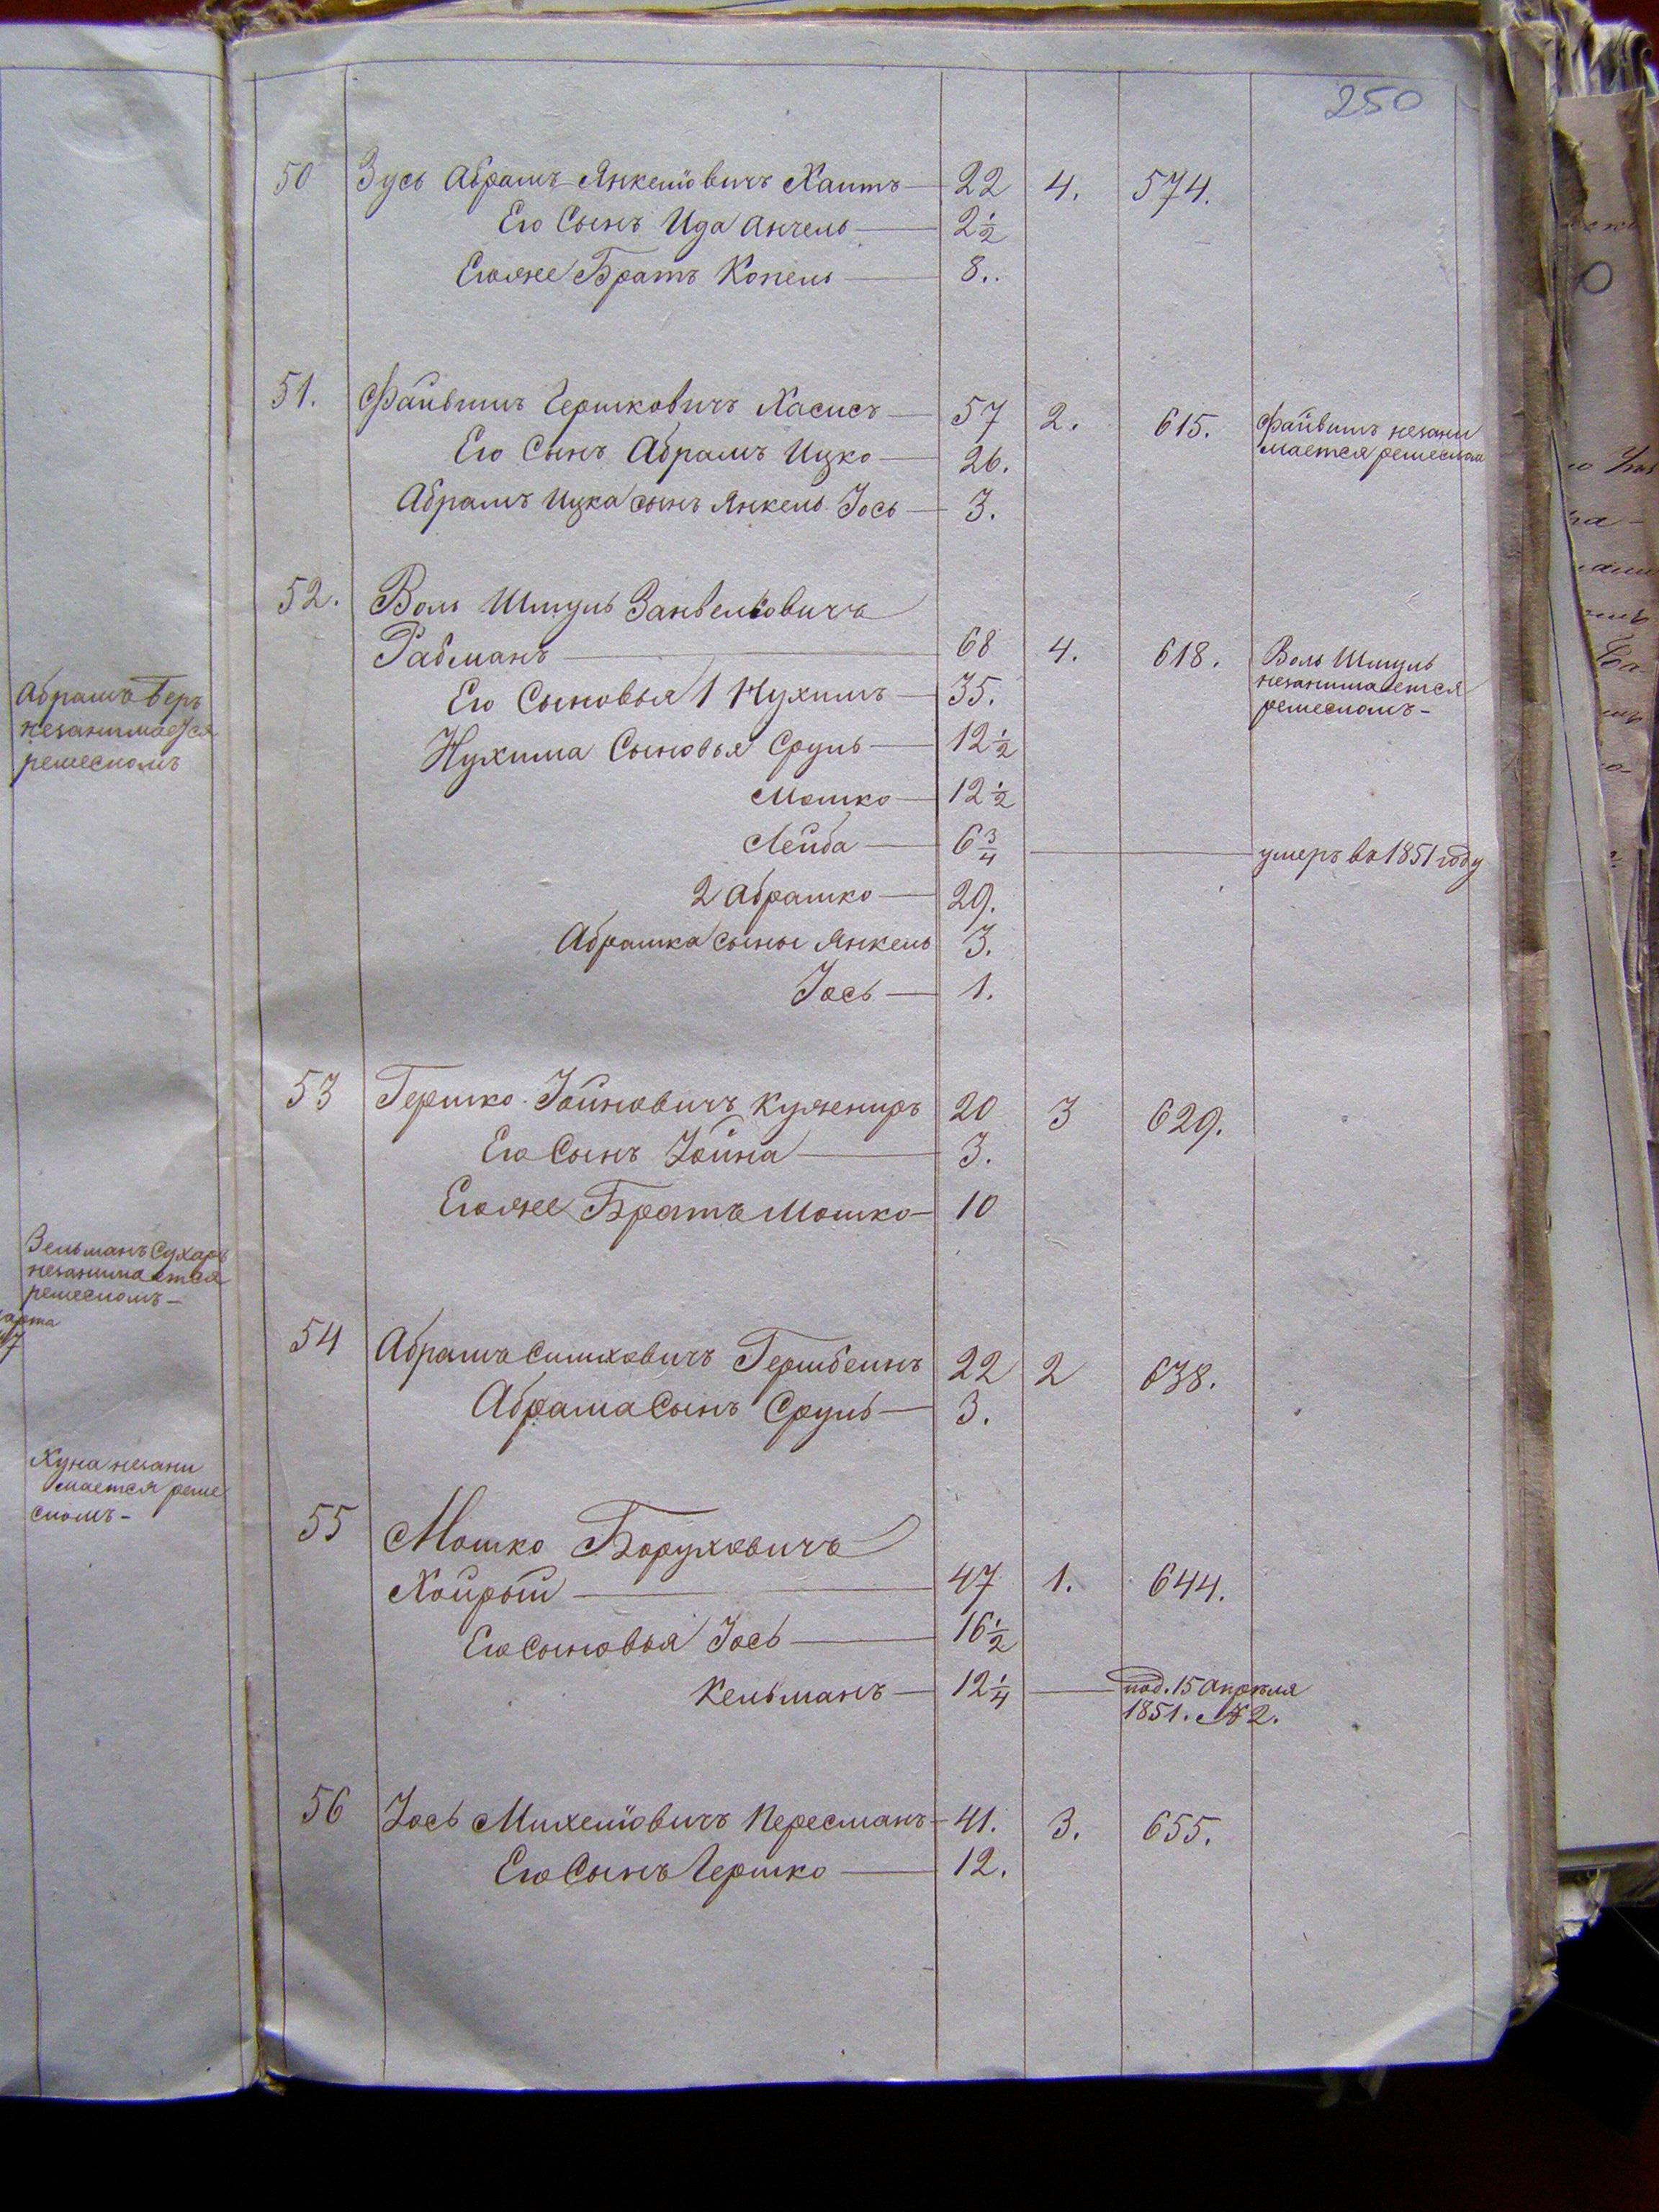 250
50 Зусь Абрамъ Янкелёвичъ Хаитъ 22 4. 574.
Его Сынъ Ида Анчель 2 1/2
Егоже Братъ Копель 8..
51. Файвишъ Гершковичъ Хасисъ 57 2. 615. Файвишъ незани
мается ремесломъ
Его Сынъ Абрамъ Ицко 26.
Абрамъ Ицка сынъ Янкель Іось 3.
52. Воль Шмуль Занвелёвичъ
Рабманъ 68 4. 618. Воль Шмуль
незанимается
ремесломъ-
Его Сыновья 1 Нухимъ 35.
Нухима Сыновья Сруль 12 1/2
Мошко 12 1/2
Лейба 6 3/4 умеръ въ 1851 году
2 Абрашко 29.
Абрашка сыны Янкель 3.
Іось 1.
53 Гершко Іойновичъ Кужениръ 20 3 629.
Его Сынъ Іойна 3.
Егоже Братъ Мошко 10
54 Абрамъ Симховичъ Гершбейнъ 22 2 638.
Абрама Сынъ Сруль 3.
55 Мошко Боруховичъ
Хойрыш 47 1. 644.
Его сыновья Іось 16 1/2
Кельманъ 12 1/4 под. 15 Апреля
1851. № 2.
56 Іось Михелёвичъ Пересманъ 41. 3. 655.
Его Сынъ Гершко 12.
Абрамъ Беръ
незанимается
ремесломъ
Зельманъ Сухаръ
незанимается
ремесломъ-
Хуна незани
мается реме
сломъ-